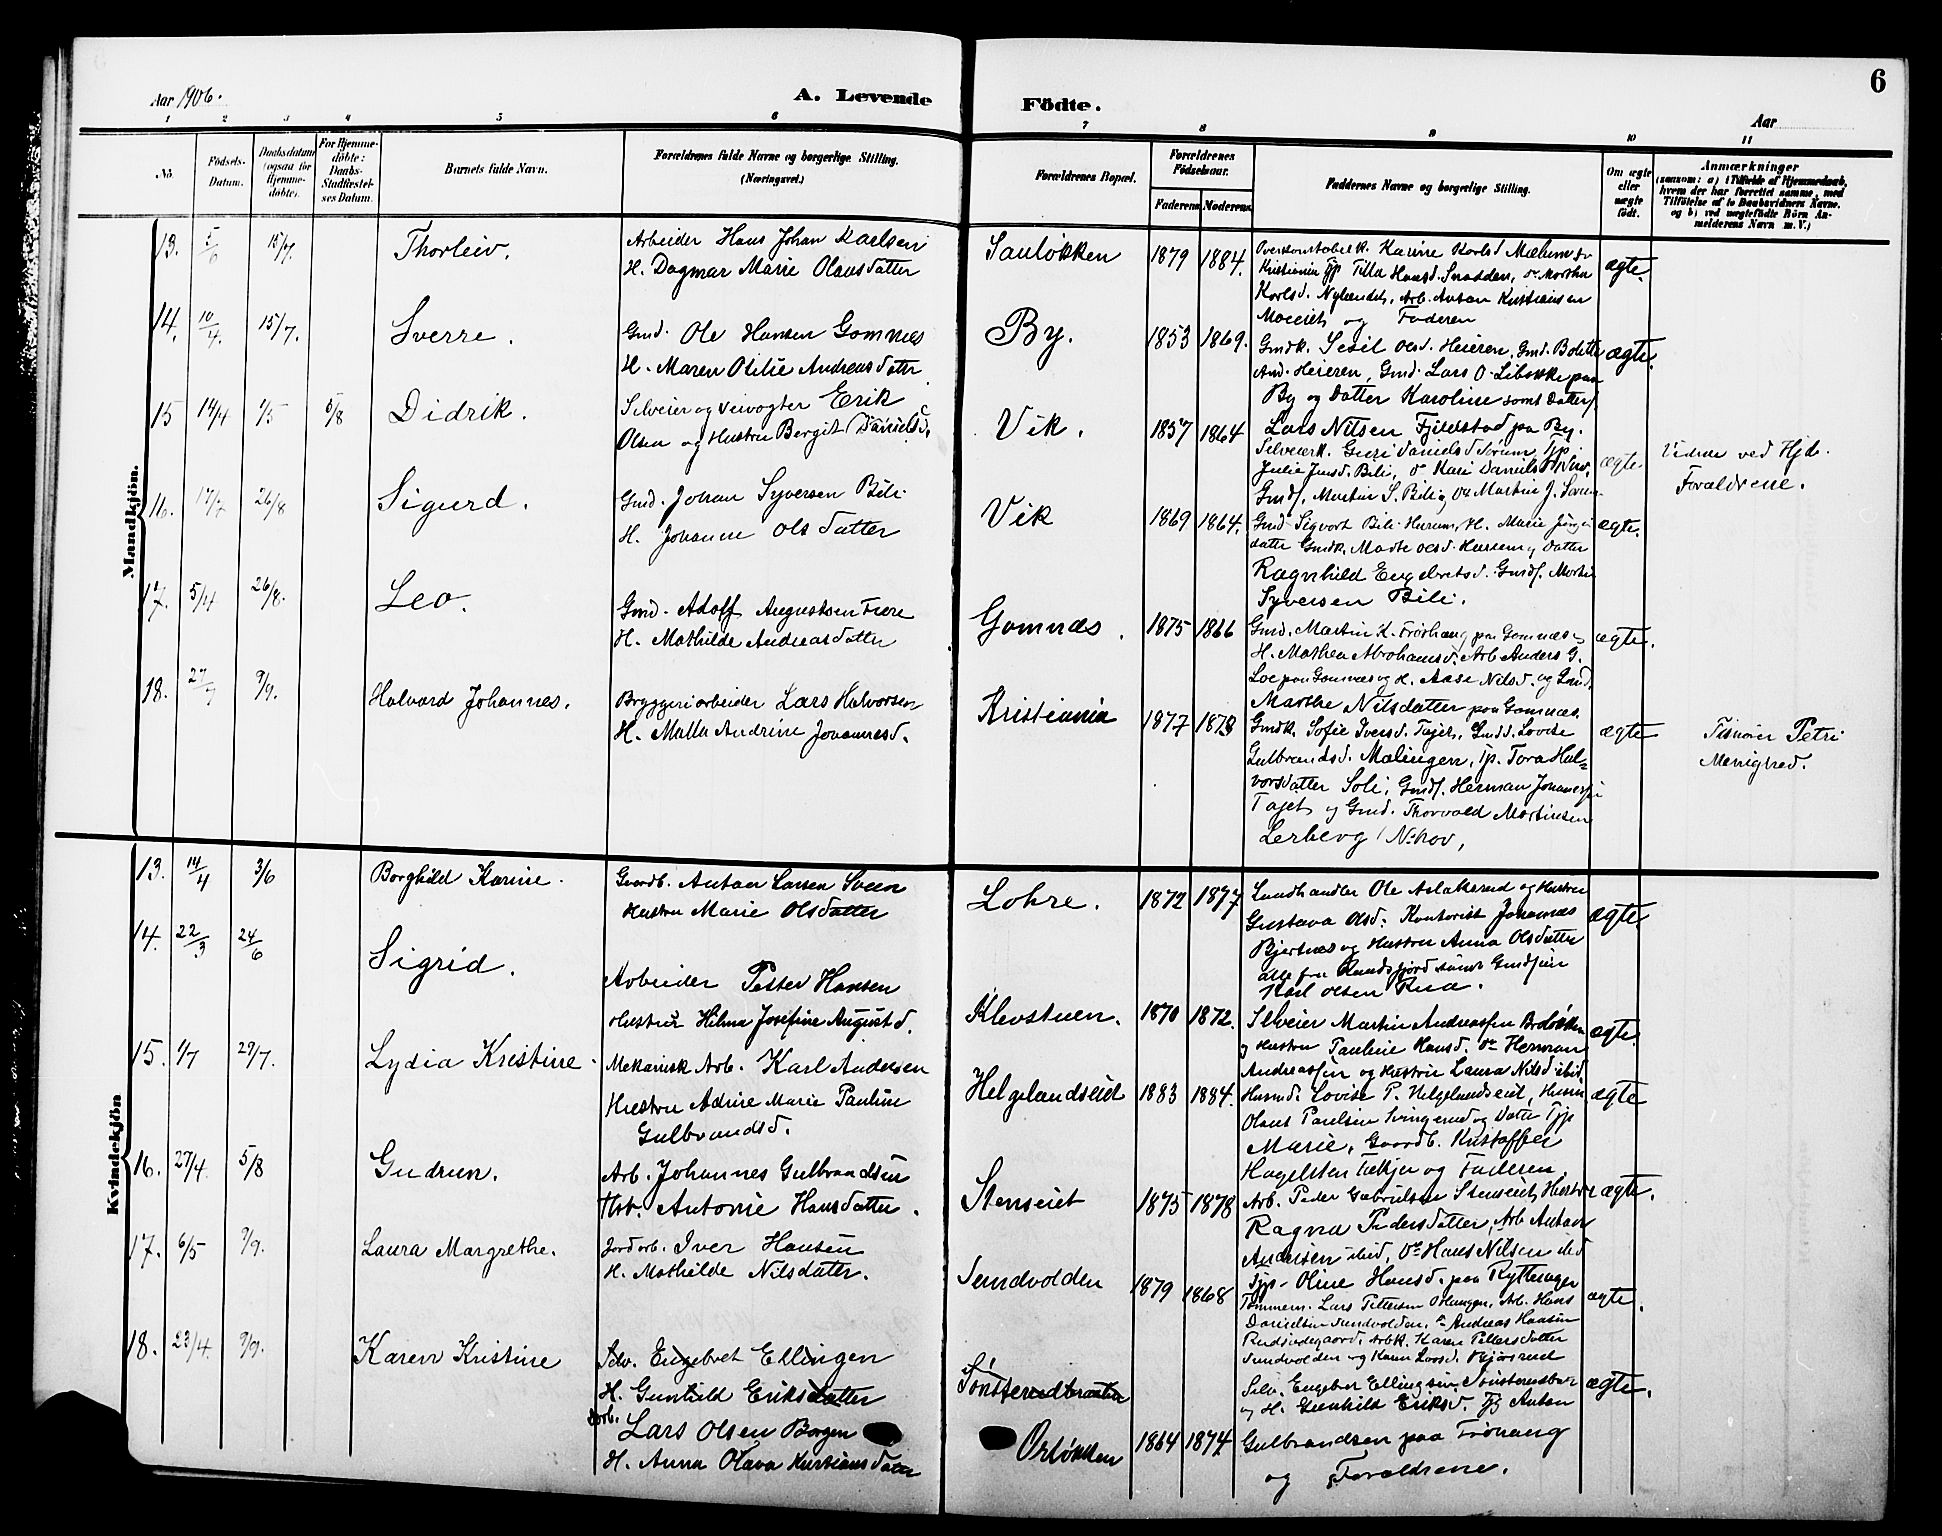 6
Aar 1906.
A. Levende
Födte.
Aar
1 2 3 4 5 6 7 8 9 10 11
No
Födsels-
Datum.
Daabsdatum
(ogsaa for
Hjemme-
döbte).
For Hjemme-
döbte:
Daabs-
Stadfæstel-
ses Datum.
Barnets fulde Navn.
Forældrenes fulde Navne og borgerlige Stilling.
(Næringsvei.)
Forældrenes Bopæl.
Forældrenes
Födselsaar.
Faderens Moderens
Faddernes Navne og borgerlige Stilling.
Om ægte
eller
uægte
födt.
Anmærkninger
(saasom: a) i Tilfælde af Hjemmedaab,
hvem der har forrettet samme, med
Tilföielse af to Daabsvidners Navne.
og b) ved uægtefödte Börn An-
melderens Navn m. V.)
Mandkjön.
13. 5/6 15/7 Thorleiv.
Arbeider Hans Johan Karlsen
H. Dagmar Marie Olausdatter
Sauløkken 1879 1884.
Kristiania Tjp Tilla Hansd. Snadden,
Karlsd. Nylændet, Arb. Anton Kristiansen
og Faderen
ægte.
14. 10/4 15/7. Sverre.
Gmd. Ole Hansen Gomnæs
H. Maren Otilie Andreasdatter
By. 1853 1869.
Gmdk. Sesil Olsd. Heieren, Gmd. Bolette
And. Heieren, Gmd. Lars O. Libakke paa
By og Datter Karoline samt Datter
Lars Nilsen Fjeldstad paa By.
ægte.
15 14/4 1/5 5/8 Didrik.
Selveier og Veivogter Erik
Olsen og Hustru Bergit Danielsd.
Vik. 1857 1864
Selveierk. Guri Danielsd. Sørum, Tjp
Julie Jensd. Bili, Kari Danielsd.
Gmdf. Martin S. Bili og Martin J.
ægte.
ved Hjd.
Forældrene.
16. 17/7 26/8 Sigurd.
Gmd. Johan Syversen Bili
H. Johanne Olsdatter
Vik 1869 1864.
Gmd. Sigvart Bili Hurum, H. Marie
datter Gmdk. Olsd. Hurum og Datter
Ragnhild Engebretsd. Gmdf. Martin
Syversen Bili.
ægte.
17. 5/4 26/8. Leo.
Gmd. Adolf Augustsen
H. Mathilde Andreasdatter
Gomnæs. 1875 1866
Gmd. Martin K. Frøhaug paa Gomnæs og
H. Mathea Abrahamsd. Arb. Anders G.
Loe paa Gomnæs og H. Aase Nilsd. og Gmd.
Marthe Nilsdatter paa Gomnæs.
ægte.
18. 27/7 9/9. Halvard Johannes.
Bryggeriarbeider Lars Halvorsen
H. Malla Andrine Johannesd.
Kristiania 1877 1878
Gmdk. Sofie Iversd. Tajet, Gmdd. Lovise
Gulbrandsd. Malingen, Tp. Tora Hal-
vorsdatter Soli, Gmdf. Herman Johannessen
Tajet og Gmd. Thorvald Martinsen
Lerberg /N.hov,
ægte
Petri
Menighed.
Kvindekjön
13. 14/4 3/6 Borghild Karine.
Gaardb. Anton Larsen Sveen
Hustru Marie Olsdatter
Lohre. 1872 1877
Landhandler Ole Aslaksrud og Hustru
Gustava Olsd. Kontorist Johannes
Bjertnæs og Hustru Anna Olsdatter
alle fra Randsfjord samt
Karl Olsen Rua.
ægte.
14. 22/3 24/6 Sigrid.
Arbeider Petter Hansen
Hustru Hilma Josefine Augustd.
Klevstuen. 1870 1872.
Selveier Martin Andreassen Braløkken
og Hustru Pauline Hansd. Herman
Andreassen og Hustru Laura Nilsd. ibid.
ægte.
15. 1/7 29/7. Lydia Kristine.
Mekanisk Arb. Karl Andersen
Hustru Adine Marie Pauline
Gulbrandsd.
Helgelandseiet 1883 1884.
Husmd. Lovise P. Helgelandseiet, Husm.
Olaus Paulsen Svingerud og Datter Tjp
Marie, Gaardb. Kristoffer
Hagelsten og Faderen.
ægte
16. 27/4. 5/8 Gudrun.
Arb. Johannes Gulbrandsen
Hst. Antonie Hansdatter.
Stenseiet 1875 1878
Arb. Peder Gabrielsen Stenseiet, Hustru
Ragna Pedersdatter, Arb Anton
Andersen ibid, Hans Nilsen ibid
ægte.
17. 6/5 9/9. Laura Margrethe.
Jordarb. Iver Hansen
H. Mathilde Nilsdatter.
Sundvolden 1879 1868
Tjp. Oline Hansd. paa Rytterager
Tømmerm. Lars Pettersen Øhaugen, Arb. Hans
Danielsen Sundvolden, Andreas Hansen
Arbk. Karen Pettersdatter
Sundvolden og Karen Larsd. Bjørsrud
ægte.
18. 23/4. 9/9. Karen Kristine
Selv. Engebret Ellingen
H. Gunhild Eriksdatter
Lars Olsen Borgen
H. Anna Olava Kristiansdatter
Sønsterudbraaten
Orløkken 1864 1874
Selv. Engebret Ellingsen Sønsterudbr.
og H. Gunhild Eriksd. Tj Anton
Gulbrandsen paa Frøhaug
og Forældrene.
ægte.